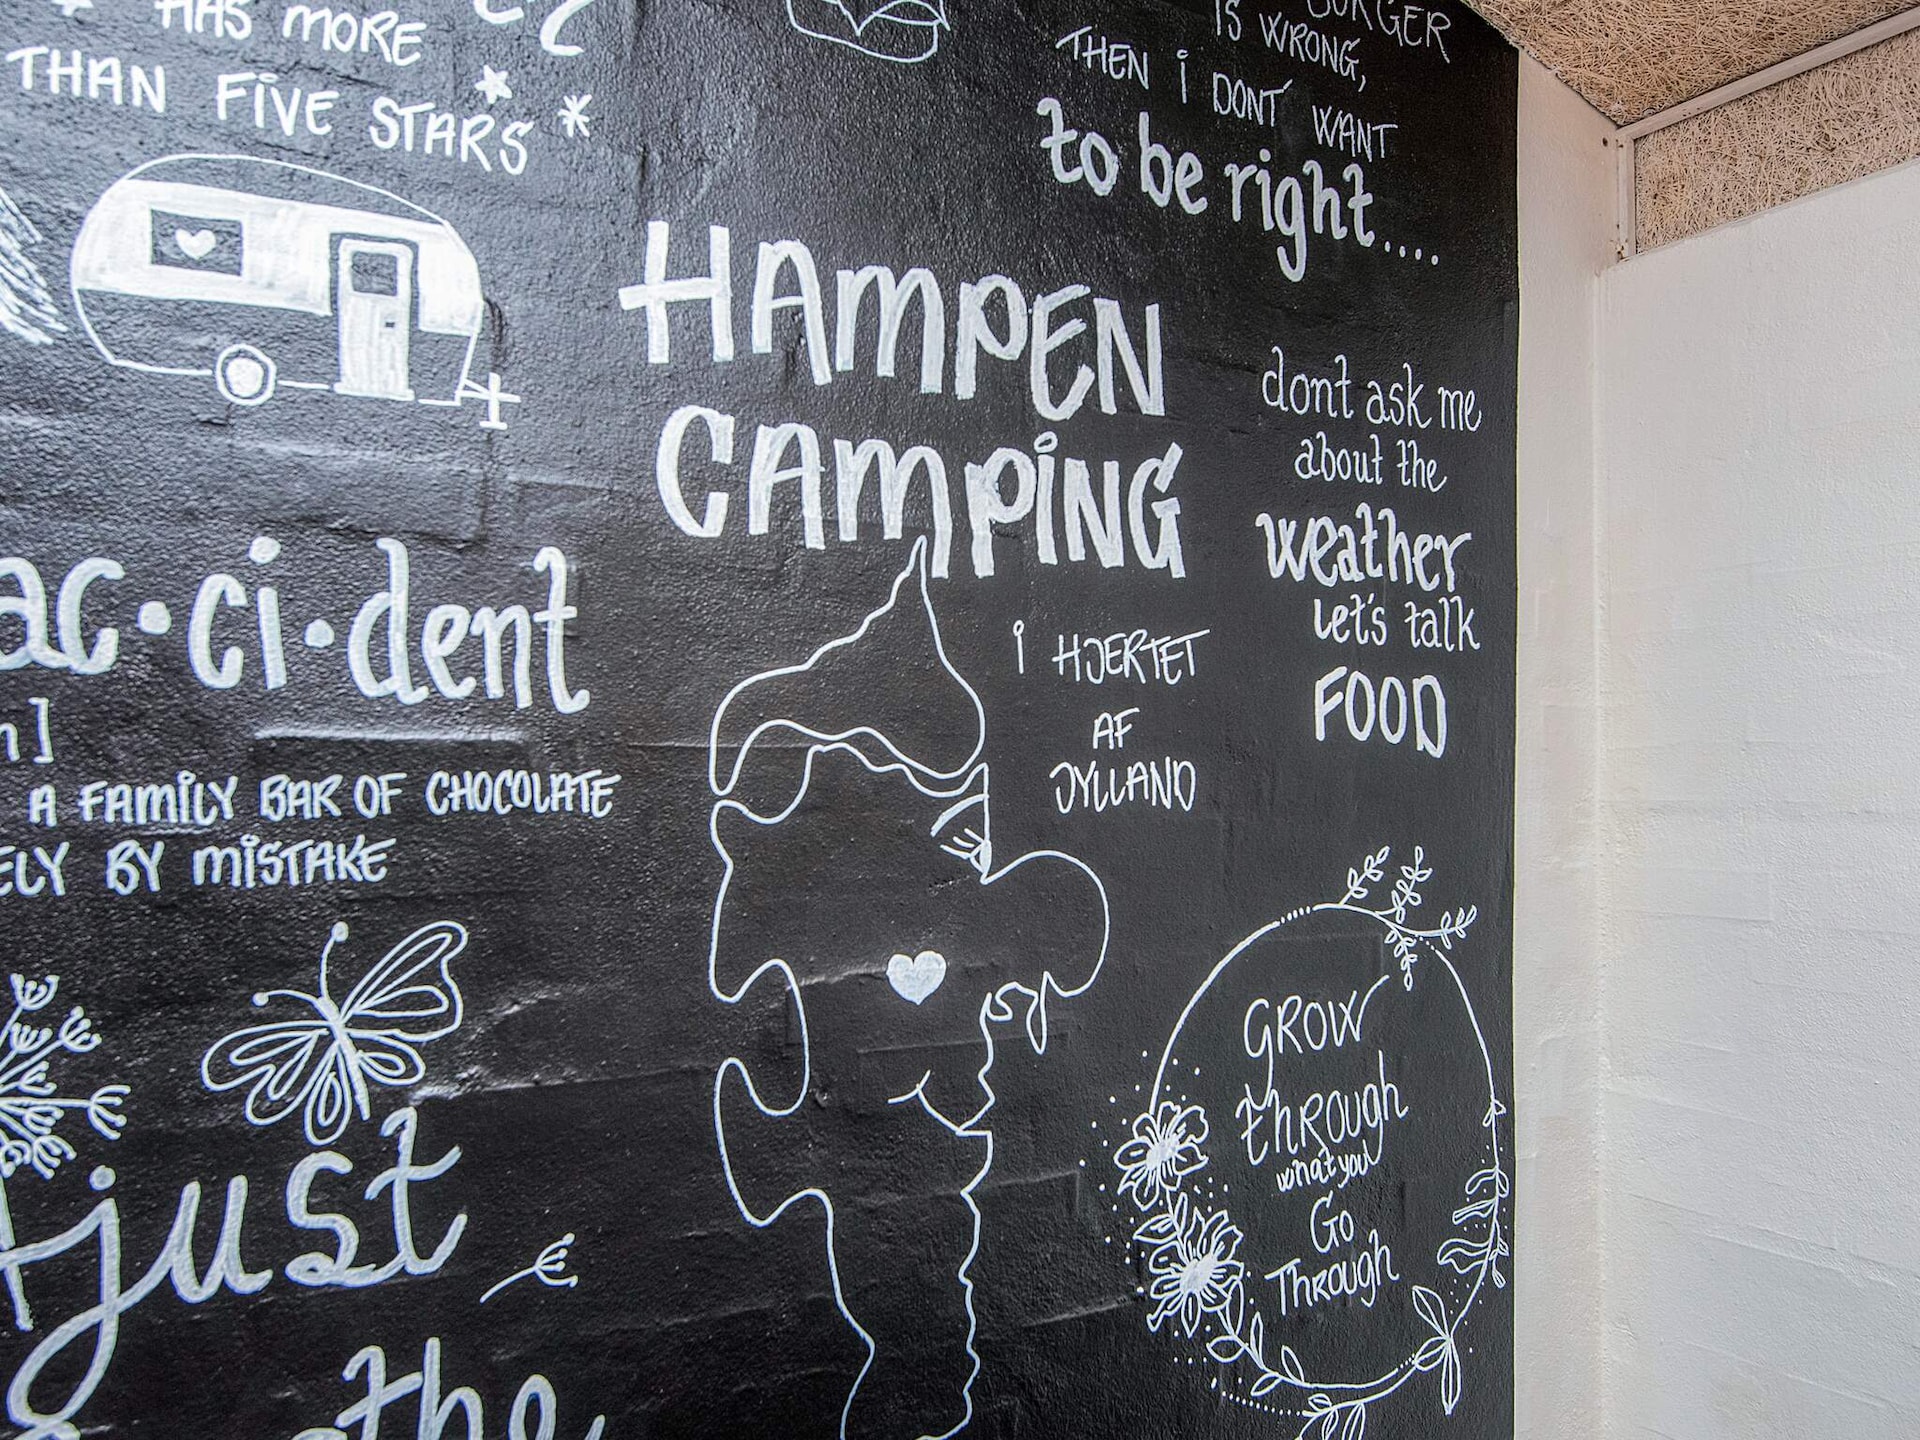 HAS MORE
THAN FIVE STARS
BURGER
IS WRONG,
THEN i DONT WANT
to be right....
HAMPEN
CAMPING
dont ask me
about the
weather
Let's talk
FOOD
ac·ci·dent
n]
A FAMILY BAR OF CHOCOLATE
ELY BY MISTAKE
I HJERTET
AF
JYLLAND
GROW
through
what you
Go
Through
just
the